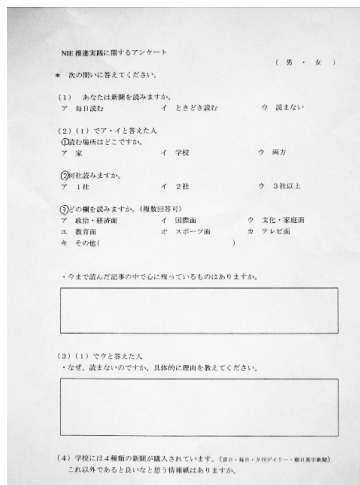 NIE推進実践に関するアンケート
(男・女)
* 次の問いに答えてください。
(1) あなたは新聞を読みますか。
ア 毎日読む イ ときどき読む ウ 読まない
(2)(1)でア・イと答えた人
①読む場所はどこですか。
ア 家 イ 学校 ウ 両方
②何社読みますか。
ア 1社 イ 2社 ウ 3社以上
③どの欄を読みますか。(複数回答可)
ア 政治・経済面 イ 国際面 ウ 文化・家庭面
エ 教育面 オ スポーツ面 カ テレビ面
キ その他( )
・今まで読んだ記事の中で心に残っているものはありますか。
(3)(1)でウと答えた人
・なぜ、読まないのですか。具体的に理由を教えてください。
(4)学校には4種類の新聞が購入されています。(・毎日・夕刊デイリー・朝日英字新聞)
これ以外であると良いなと思う情報紙はありますか。